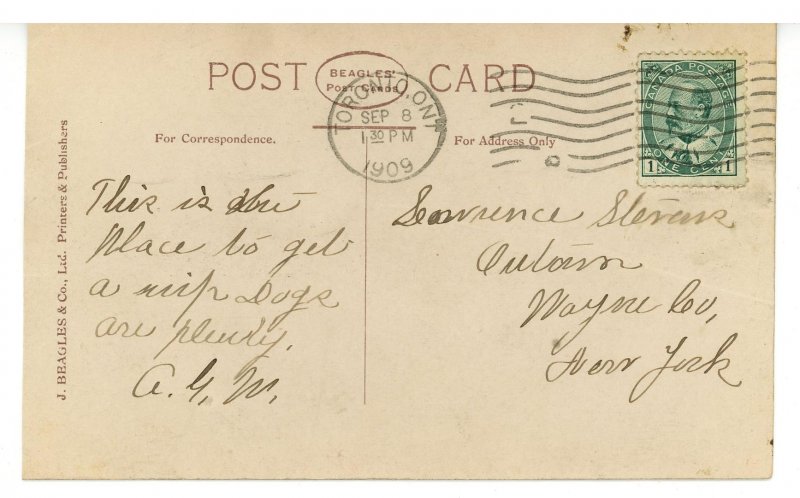 POST CARD
BEAGLES'
POST CARDS
TORONTO, ONT
SEP 8
1 30 PM
1909
CANADA POSTAGE
1 ONE CENT 1
For Correspondence.
For Address Only
J. BEAGLES & Co., Ltd. Printers & Publishers
This is the
Place to get
a nip Dogs
are plenty.
A. G. M.
Lawrence Stevens
Ontario
Wayne Co,
New York